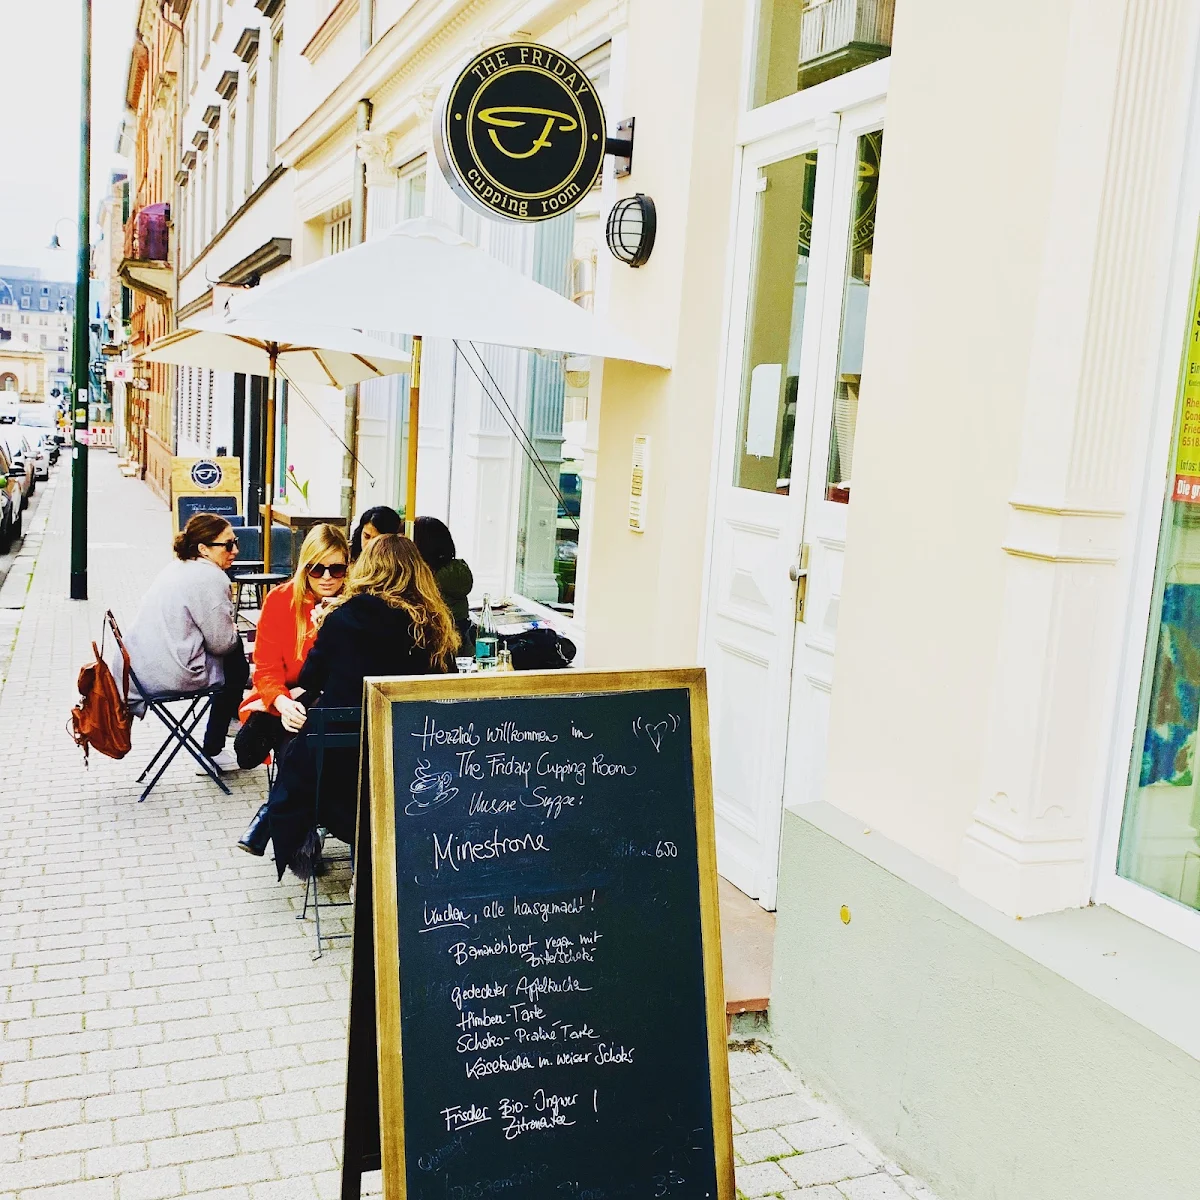 THE FRIDAY
cupping room
Herzlich willkommen im
The Friday Cupping Room
Unsere Suppe:
Minestrone 6.50
Kuchen, alle hausgemacht!
Bananenbrot vegan mit
Zartbitterschoki
gedeckter Apfelkuchen
Himbeer-Tarte
Schoko-Praliné Tarte
Käsekuchen m. weisser Schoki
Frischer Bio-Ingwer
Zitronentee !
3.50
Die